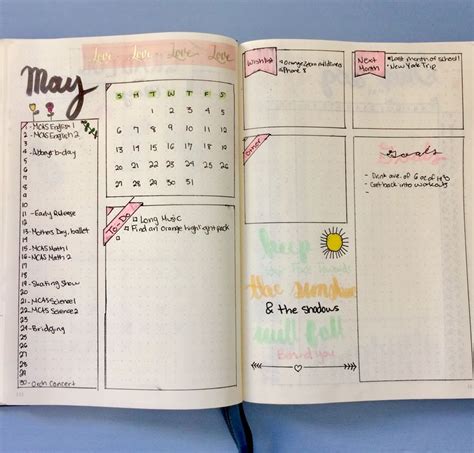 May
Love Love Love Love
S M T W T F S
1 2 3 4 5
6 7 8 9 10 11 12
13 14 15 16 17 18 19
20 21 22 23 24 25 26
27 28 29 30 31
1 - MCAS English 1
2 - MCAS English 2
3
4 - Abbey b-day
5
6
7
8
9
10
11 - Early Release
12
13 - Mothers Day, ballet
14
15 - MCAS Math 1
16 - MCAS Math 2
17
18
19 - Skating Show
20
21 - MCAS Science 1
22 - MCAS Science 2
23
24 - Bridging
25
26
27
28
29
30 - Orch Concert
To-Do
Long Music
Find an orange highlight pack
Wishlist
Orange
Phone
Next Month
Last month of school!
New York Trip
Other
Goals
- Drink ave. of 6 oz of H2O
- Get back into workouts
keep
your face towards
the sunshine
& the shadows
will fall
Behind you